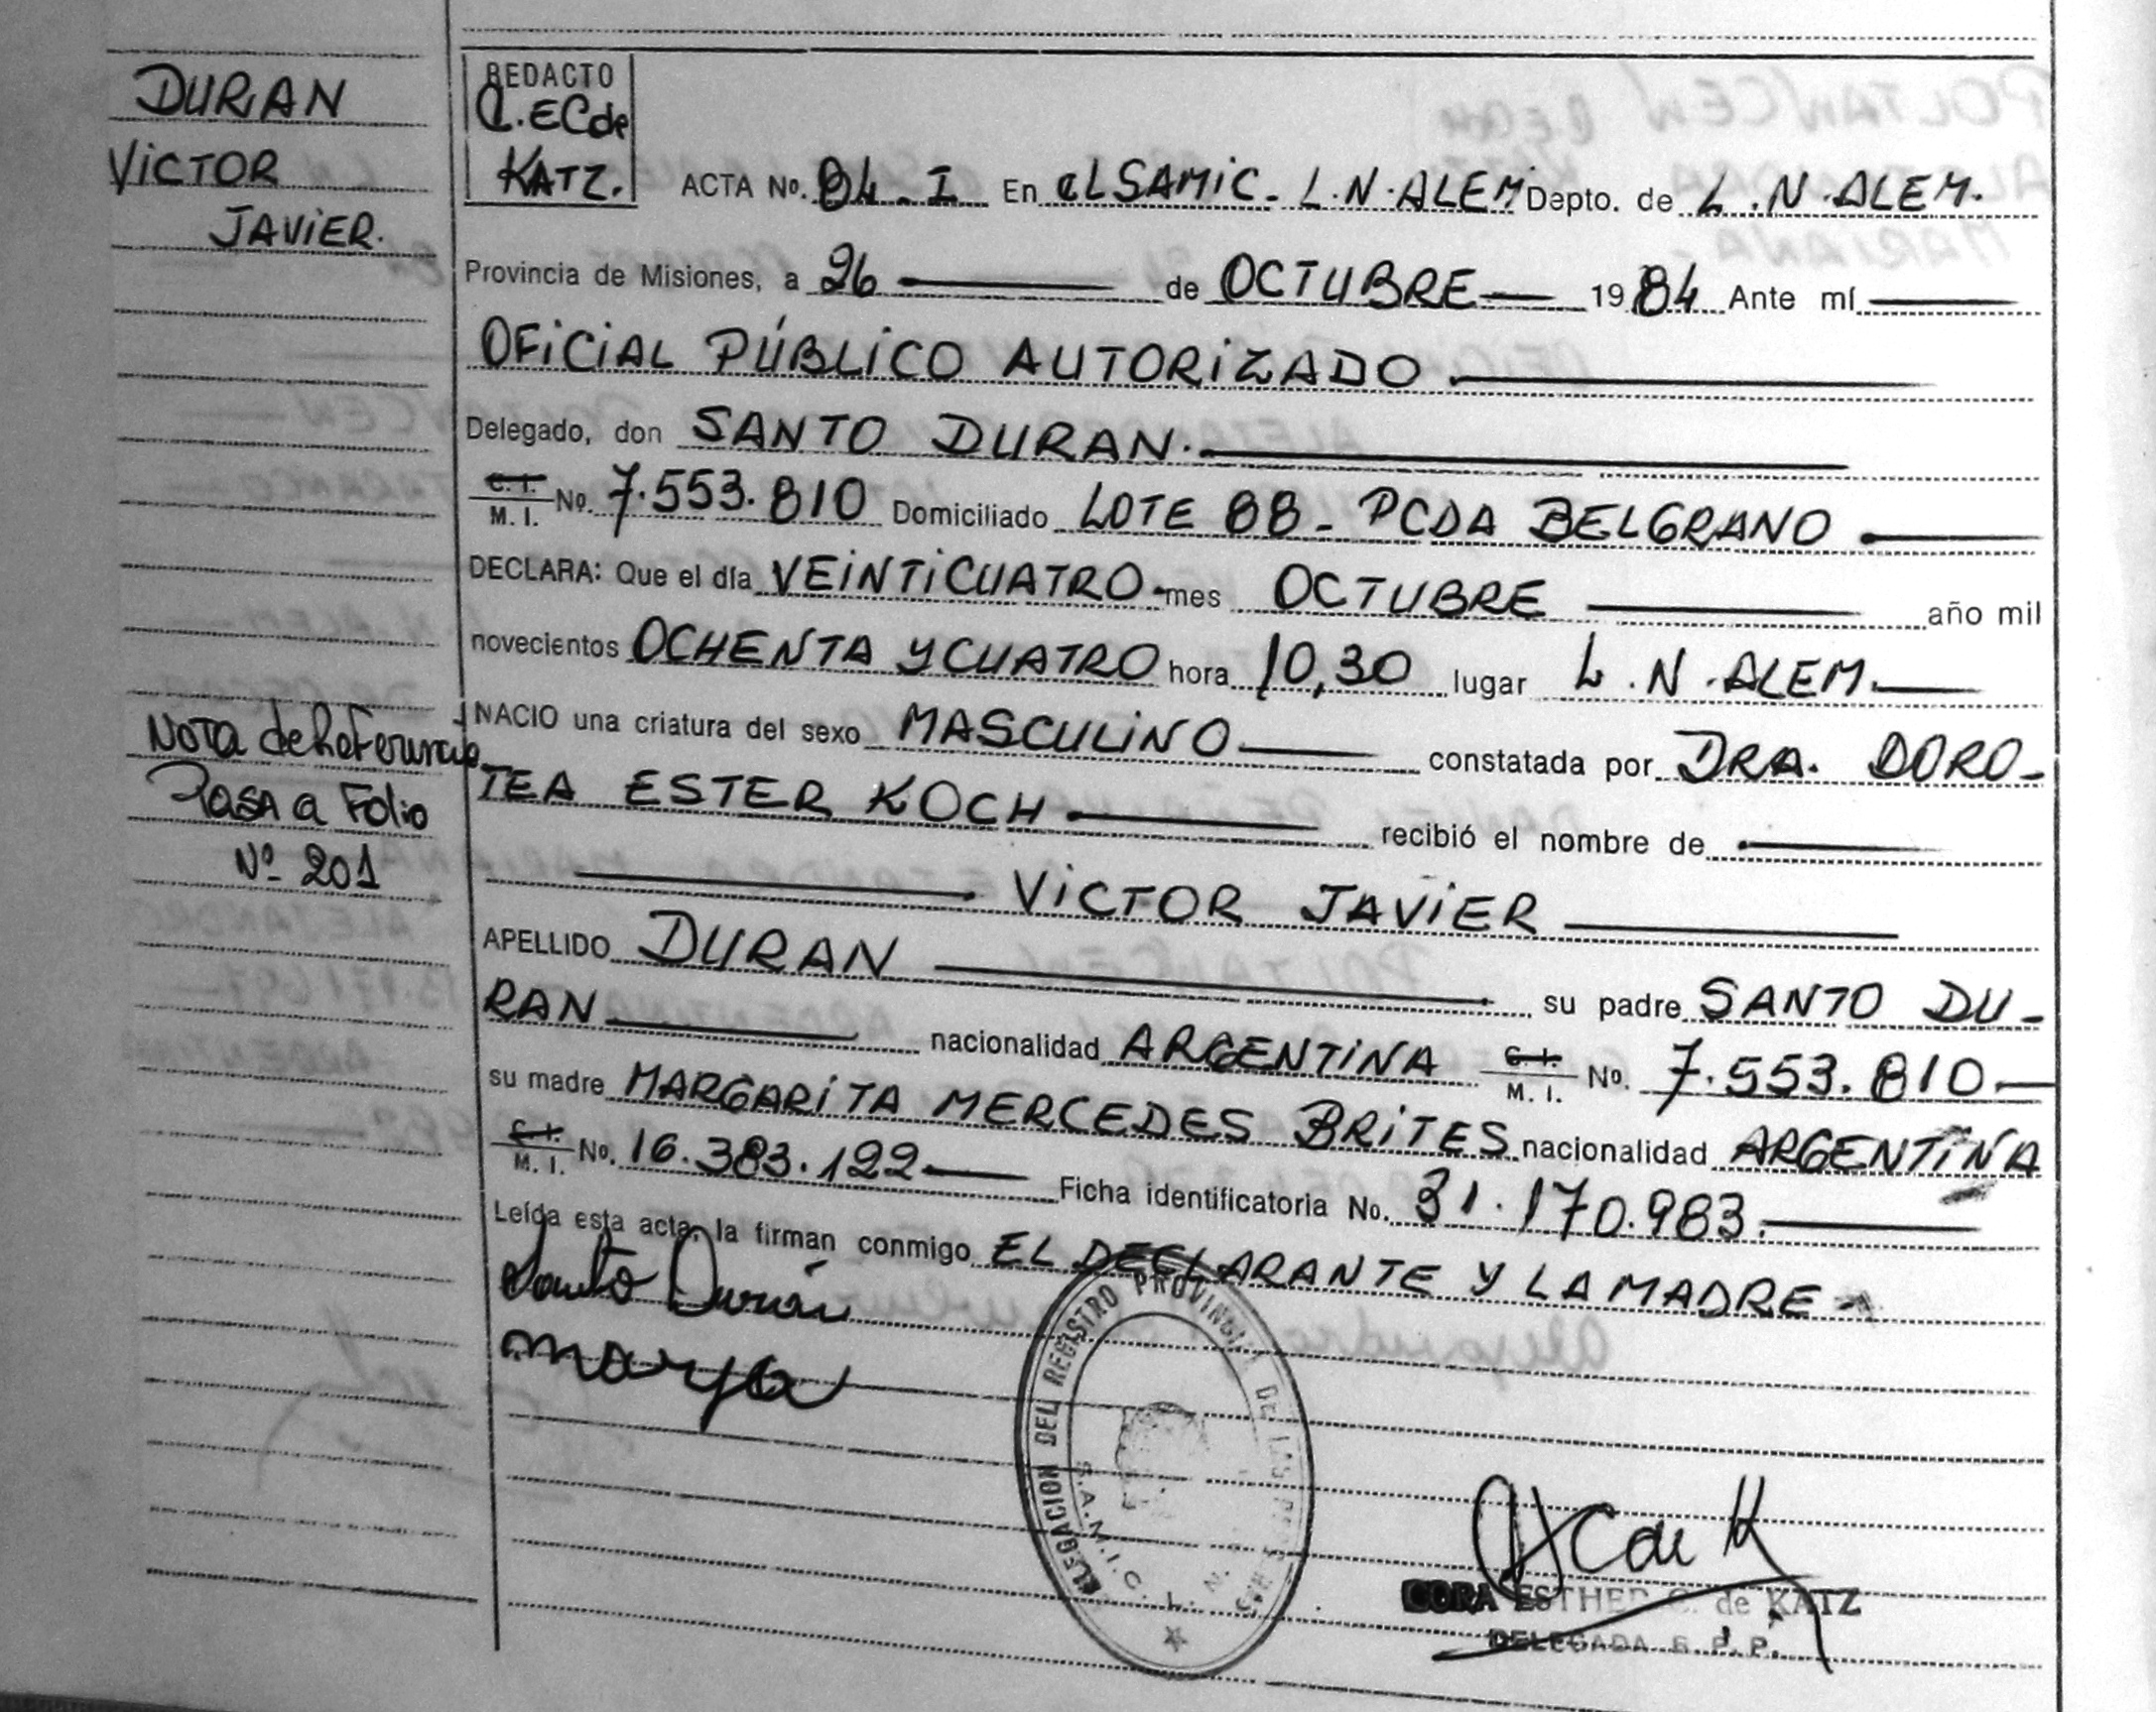 DURAN
VICTOR
JAVIER.
Nota de Referencia
Pasa a Folio
Nº 201
REDACTO
C.EC de
KATZ.
ACTA No. 84 - I En el SAMIC - L.N. ALEM Depto. de L.N. ALEM.
Provincia de Misiones, a 26 de OCTUBRE 1984 Ante mí
OFICIAL PÚBLICO AUTORIZADO
Delegado, don SANTO DURAN.
C. I. M. I. No. 7.553.810 Domiciliado LOTE 88 - PCDA BELGRANO
DECLARA: Que el día VEINTICUATRO mes OCTUBRE año mil
novecientos OCHENTA Y CUATRO hora 10,30 lugar L.N. ALEM.
NACIO una criatura del sexo MASCULINO constatada por DRA. DORO-
TEA ESTER KOCH recibió el nombre de
VICTOR JAVIER
APELLIDO DURAN su padre SANTO DU-
RAN nacionalidad ARGENTINA C. I. M. I. No. 7.553.810
su madre MARGARITA MERCEDES BRITES nacionalidad ARGENTINA
C. I. M. I. No. 16.383.122 Ficha identificatoria No. 31.170.983.
Leída esta acta, la firman conmigo EL DECLARANTE Y LA MADRE -
Santo Durán
DELEGACION DEL REGISTRO PROVINCIAL DE LAS PERSONAS
S.A.M.I.C. L. N.
CORA ESTHER C. de KATZ
DELEGADA R. P. P.